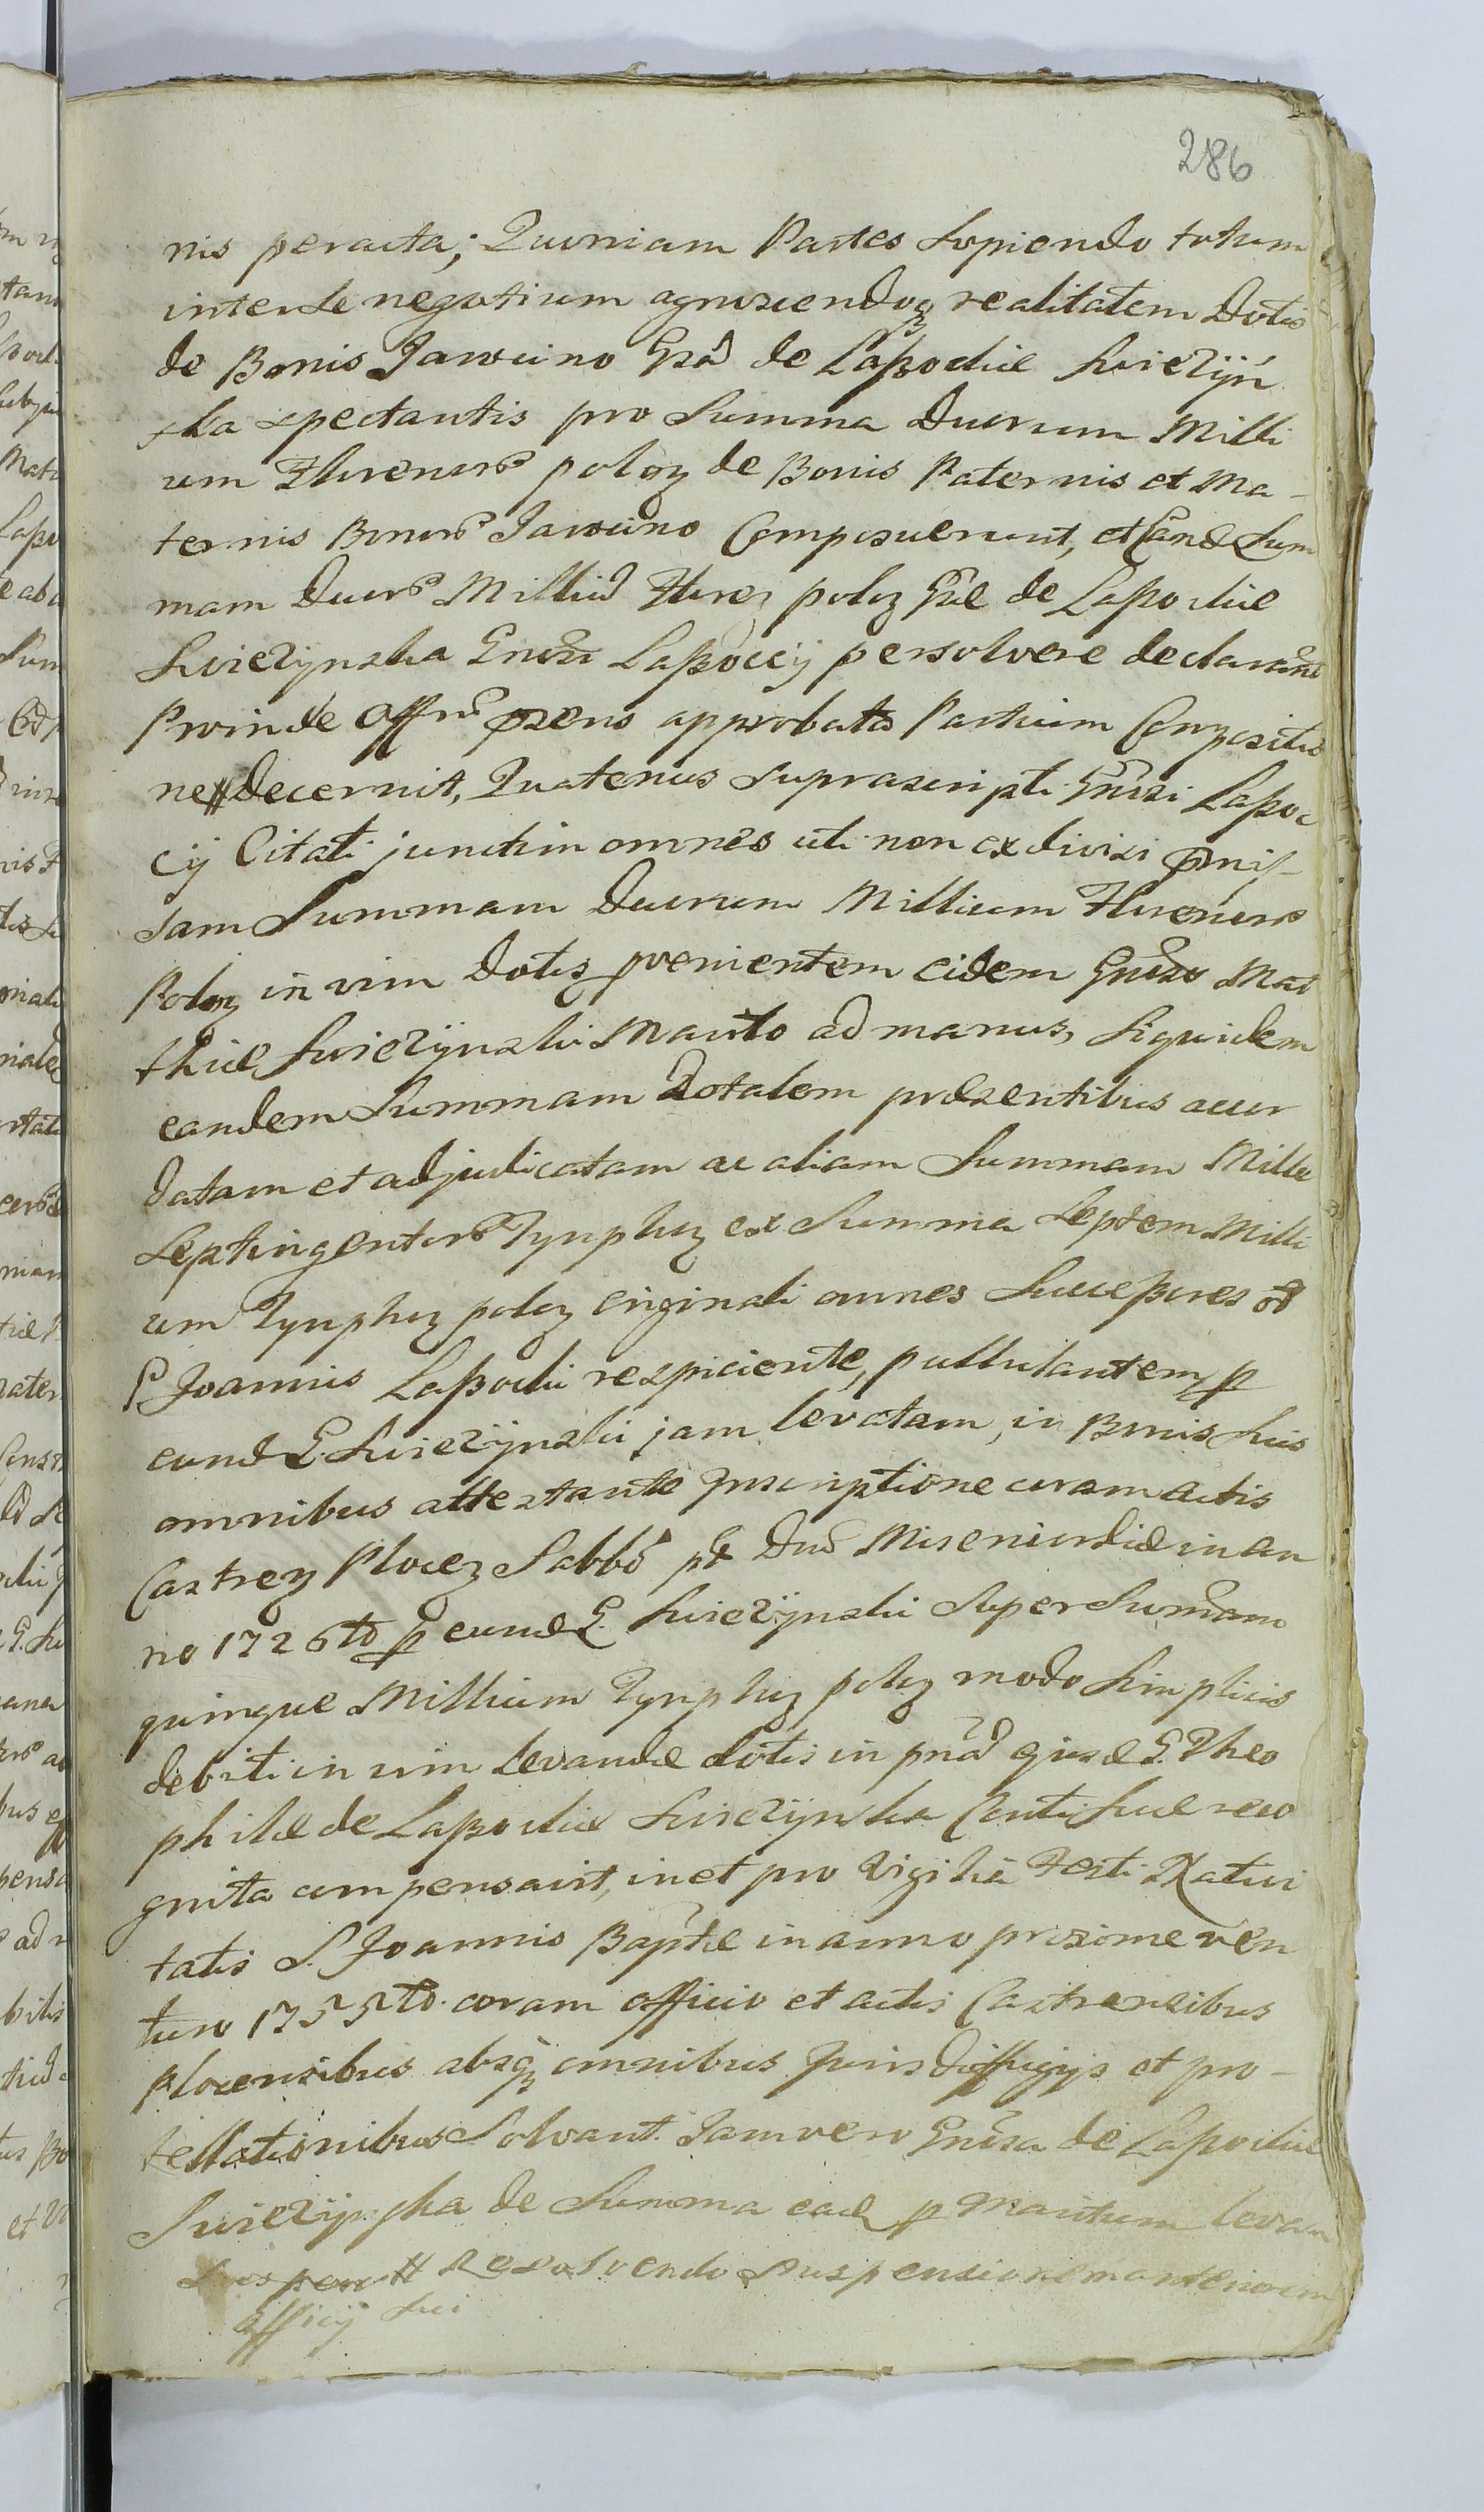 286
nis peracta; Quoniam Partes Sopiendo totum
inter se negotium agnoscendoq realitatem Dotis
de Bonis Jawcino Gsa de Łaßockie Swiezyn
ska spectantis pro Summa Duorum Milli
um Florenor polog de Bonis Paternis et Ma-
ternis Bonor Jawcino Composuerunt, et Eand Sum
mam Duor Milliu Floreg polog Gsae de Łaßockie
Swiezynska Gnosi Łaßoccy persolvere declararunt
Proinde Offm prens approbata Partium Compositio
ne # Decernit, Quatenus Suprascripti Gnosi Łaßoc
cy Citati junctim omnes uti non exdivisi pmis-
sam Summam Duorum Millium Florenor
Polog in vim Dotis provenientem eidem Gnoso Mat
thiae Swiezynski Marito ad manus, Siquidem
eandem Summam Dotalem praesentibus accor
datam et adjudicatam ac aliam Summam Mille
Septingentor Tynphog ex Summa Septem Milli
um Tynphog polog originali omnes Successores od
G Joannis Łaßocki respiciente, pullulantem p
eund G. Swiezynski jam levatam, in Bonis Suis
omnibus attestante Inscriptione coram Actis
Castreg Ploceg Sabbo pt Dnc Misericordiae in an
no 1726to p eund G. Swiezynski Super Summam
quinque Millium Tynphog polog modo Simplicis
debiti in vim levandae dotis in pna ejusd G. Theo
philae de Łaßockie Swiezynska Conti Suae reco
gnita compensavit, in et pro Vigilia Festi Nativi
tatis S. Joannis Baptae in anno proxime ven
turo 1755to. coram officio et actis Castrensibus
plocensibus absq omnibus Juris diffugijs et pro-
tellationibus Solvant. Jam vero Gnosa de Łaßockie
Swiezynska de Summa ead p Maritum levan
# Resolvendo suspensionem anteriorem
Officij Sui